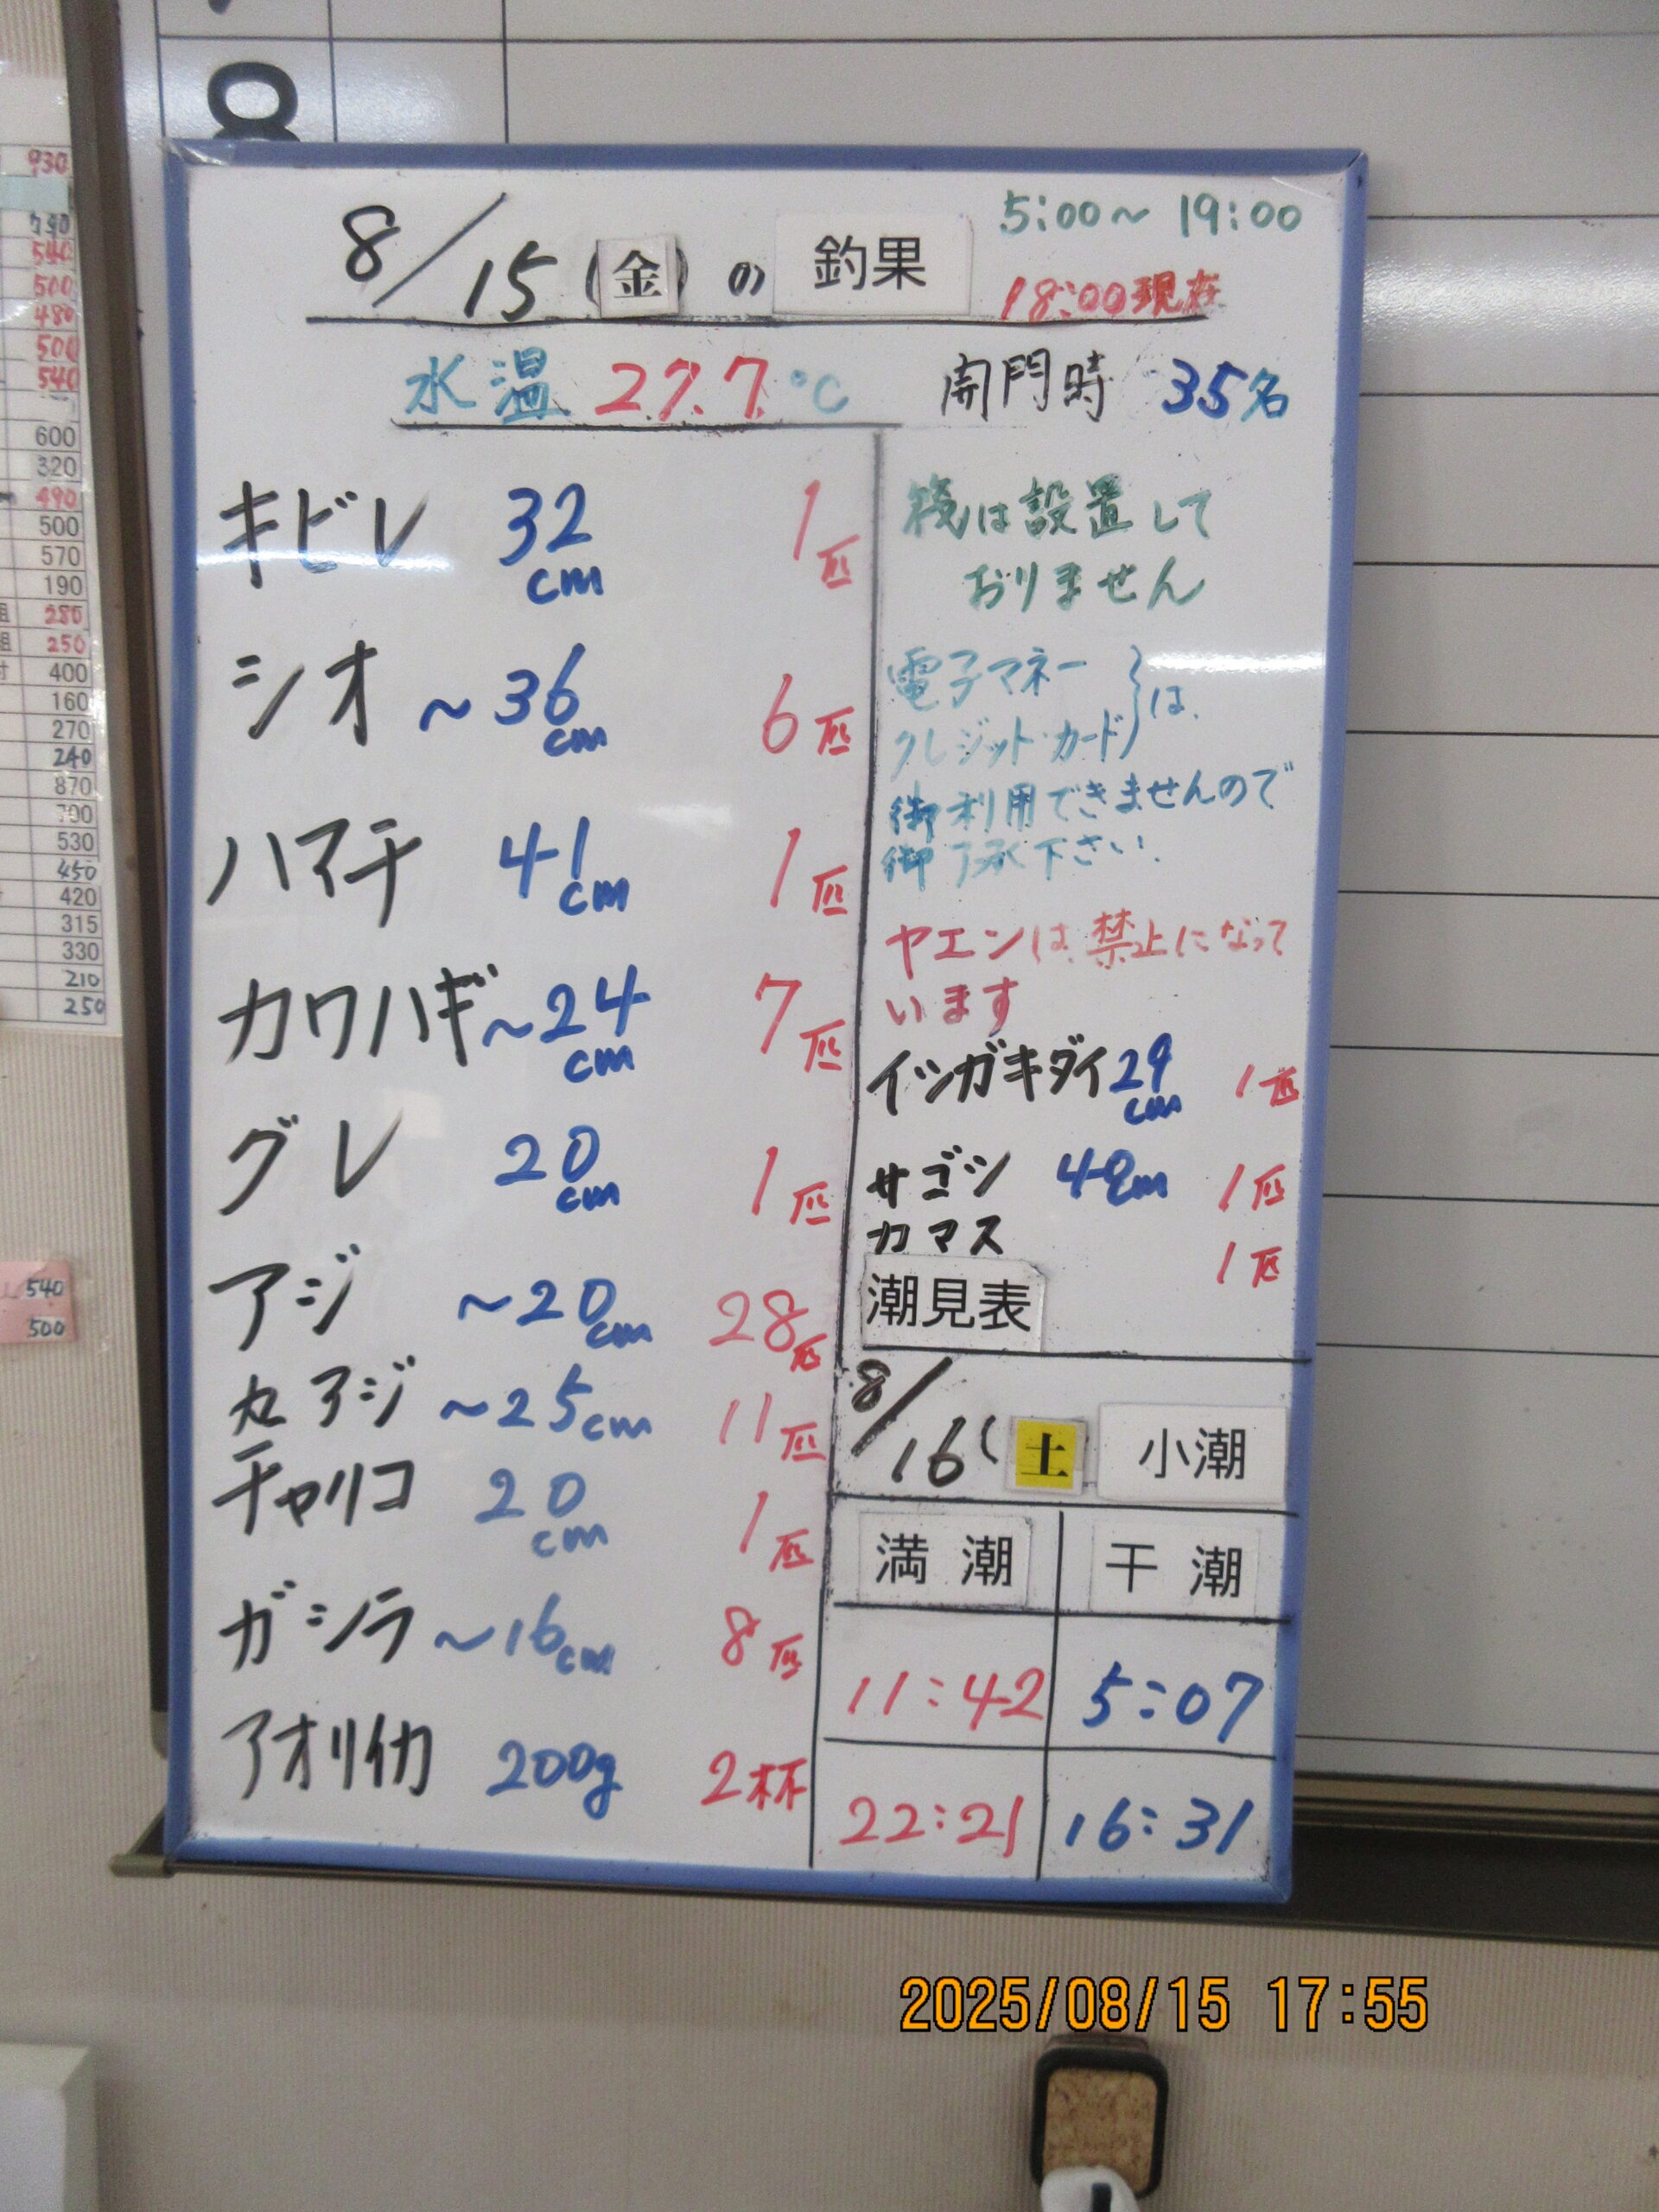 8/15(金)の 釣果
5:00〜19:00
18:00現在
水温 27.7℃
開門時 35名
キビレ 32cm 1匹
シオ 〜36cm 6匹
ハマチ 41cm 1匹
カワハギ 〜24cm 7匹
グレ 20cm 1匹
アジ 〜20cm 28匹
丸アジ 〜25cm 11匹
チャリコ 20cm 1匹
ガシラ 〜16cm 8匹
アオリイカ 200g 2杯
筏は設置して
おりません
電子マネー
クレジットカード}は
御利用できませんので
御了承下さい.
ヤエンは禁止になって
います
イシガキダイ 29cm 1匹
サゴシ 1匹
カマス 1匹
潮見表
8/16(土 小潮
満潮 干潮
11:42 5:07
22:21 16:31
930
790
540
500
480
500
540
600
320
490
500
570
190
280
250
400
160
270
240
870
700
530
450
420
315
330
210
250
540
500
2025/08/15 17:55